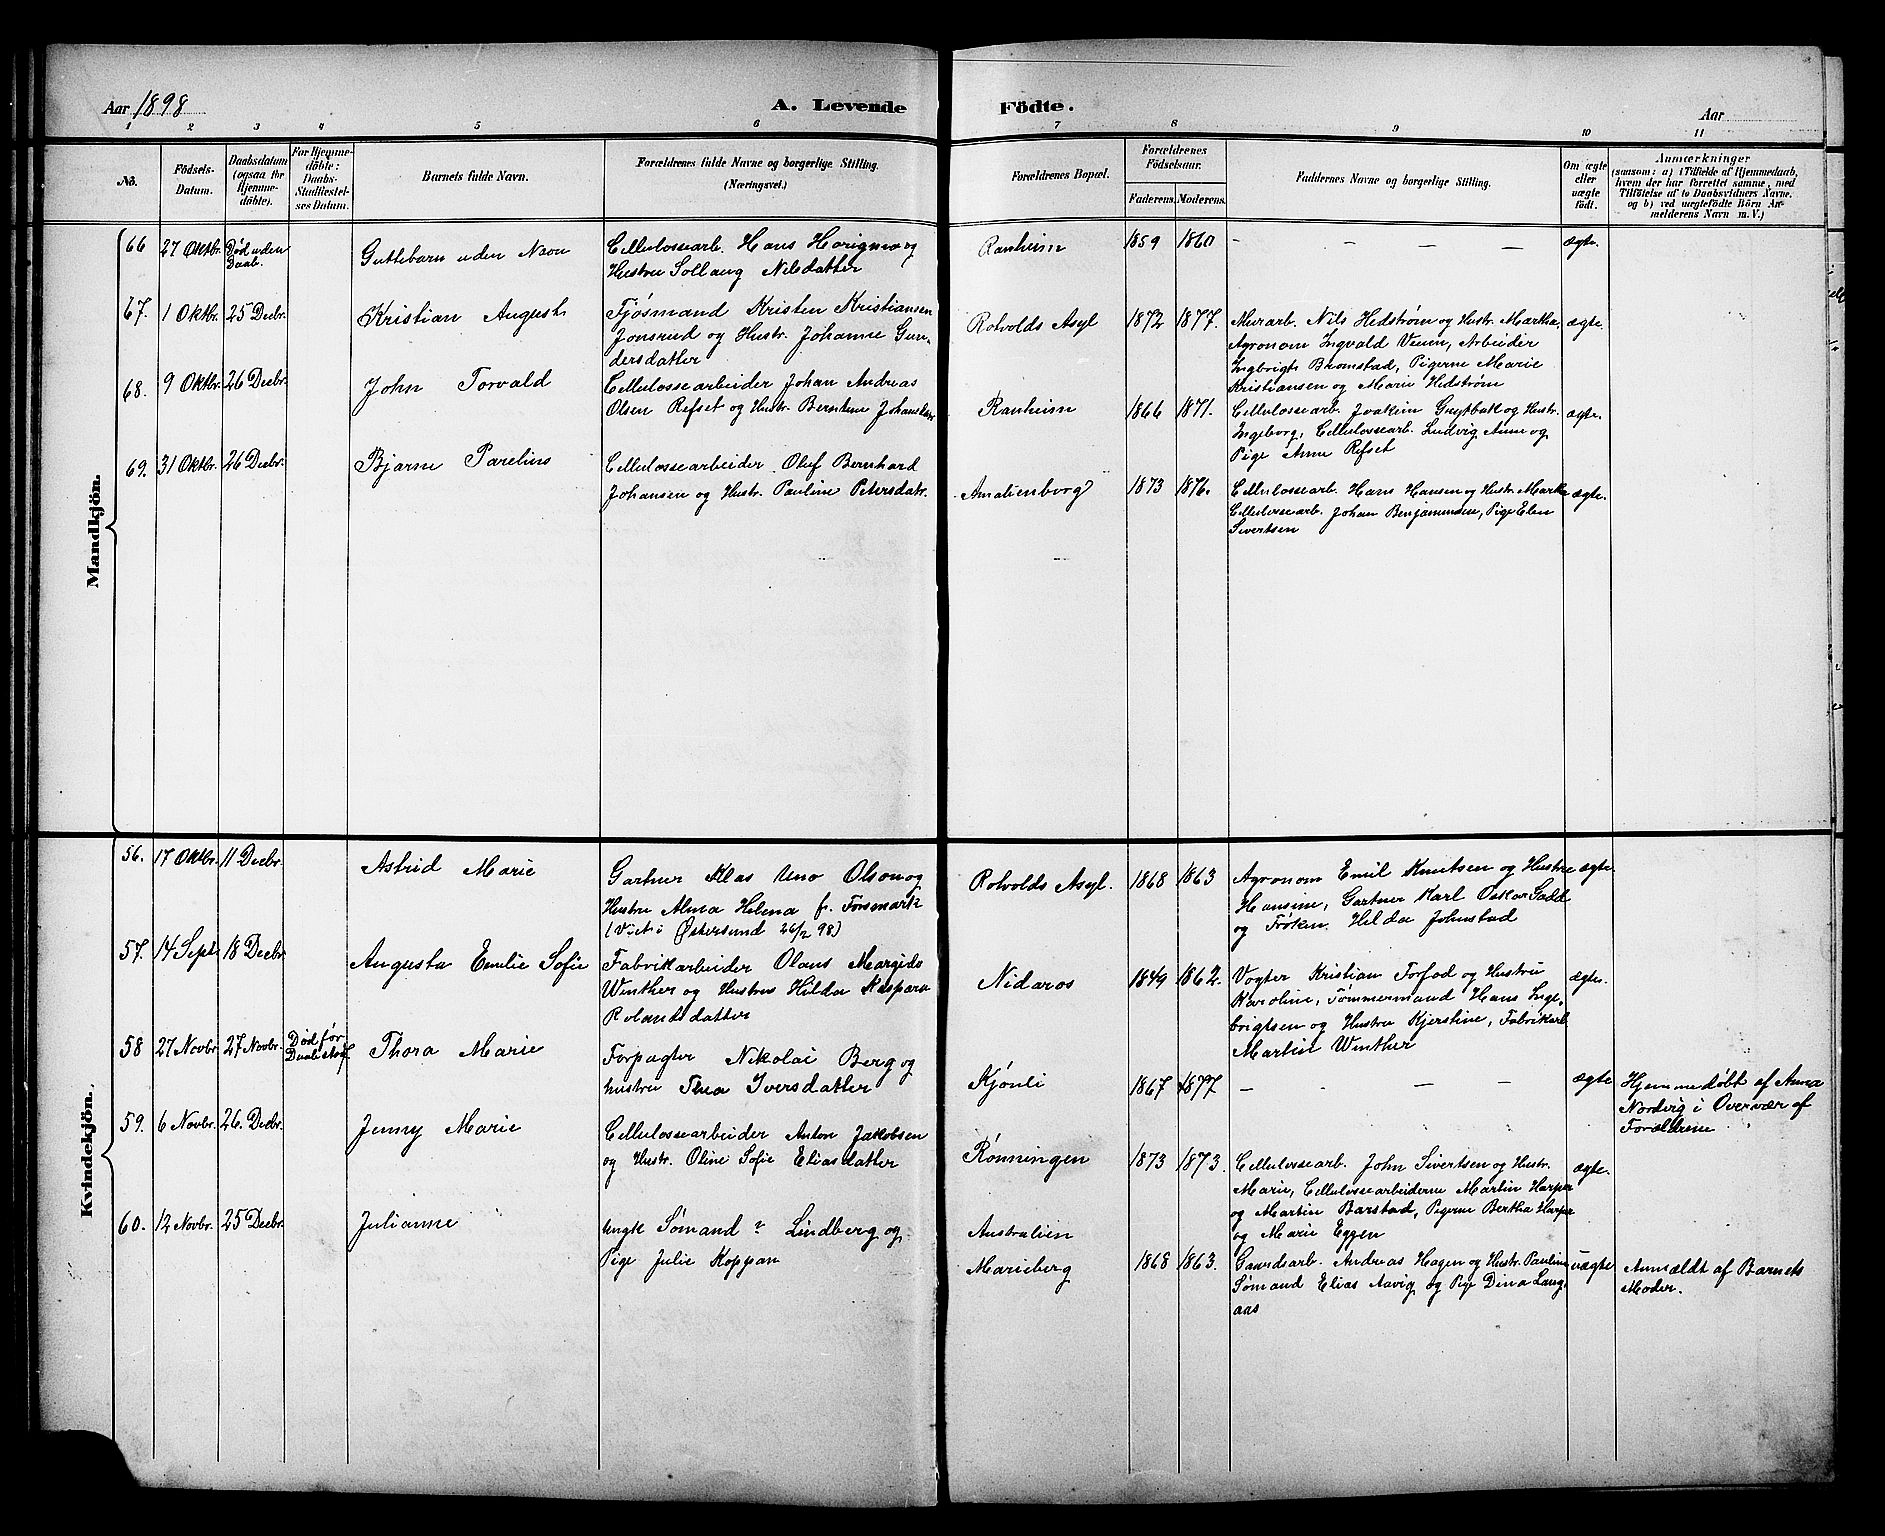 Aar 1898
A. Levende Födte.
Aar
1 2 3 4 5 6 7 8 9 10 11
No.
Födsels-
Datum.
Daabsdatum
(ogsaa for
Hjemme-
döbte).
For Hjemme-
döbte:
Daabs-
Stadfæstel-
ses Datum.
Barnets fulde Navn.
Forældrenes fulde Navne og borgerlige Stilling.
(Næringsvei.)
Forældrenes Bopæl.
Forældrenes
Födselsaar.
Faderens. Moderens.
Faddernes Navne og borgerlige Stilling.
Om ægte
eller
uægte
födt.
Anmærkninger
(saasom: a) i Tilfælde af Hjemmedaab,
hvem der har forrettet samme, med
Tilföielse af to Daabsvidners Navne.
og b) ved uægtefödte Börn An-
melderens Navn m. V.)
Mandkjön.
66 27 Oktbr. Död uden
Daab.
Guttebarn uden Navn
Cellulossearb. Hans Haugmo og
Hustru Sollaug Nilsdatter
Ranheim 1859 1860 — — — — ægte.
67. 1 Oktbr. 25 Decbr.
Kristian August
Fjøsmand Kristen Kristiansen
Jonsrud og Hustr. Johanne Gun-
dersdatter
Rotvolds Asyl 1872 1877.
Murarb. Nils Hedstrøm og Hustr. Martha,
Agronom Ingvald Veien, Arbeider
Ingbrigt Bromstad, Pigerne Marie
Kristiansen og Marie Hedstrøm
ægte.
68. 9 Oktbr. 26 Decbr.
John Torvald
Cellulossearbeider Johan Andreas
Olsen Refset og Hustr. Berntine Johansdtr
Ranheim 1866 1871.
Cellulossearb. Joakim Grytbak og Hustr.
Ingeborg, Cellulossearb. Ludvig Aune og
Pige Anne Refset
ægte.
69. 31 Oktbr. 26 Decbr.
Bjarne Parelius
Cellulossearbeider Oluf Bernhard
Johansen og Hustr. Pauline Petersdatr.
Amalienborg 1873 1876.
Cellulossearb. Hans Hansen og Hustr. Martha
Cellulossearb. Johan Benjaminsen, Pige Elen
Sivertsen
ægte.
Kvindekjön.
56. 17 Oktbr. 11 Decbr.
Astrid Marie
Gartner Klas Uno Olson og
Hustru Alma Helena f. Forsmark
(Viet i Østersund 26/2 98)
Rotvolds Asyl. 1868 1863
Agronom Emil Knutsen og Hustru
Hansine, Gartner Karl Oskar Gadd
og Frøken Hilda Johnstad
ægte.
57. 14 Septr. 18 Decbr.
Augusta Emilie Sofie
Fabrikarbeider Olaus Margido
Winther og Hustru Hilda Kaspara
Rolandsdatter
Nidaros 1849 1862.
Vogter Kristian Forfod og Hustru
Karoline, Tømmermand Hans Inge-
brigtsen og Hustru Kjerstine, Fabrikarb.
Martin Winther
ægte.
58 27 Novbr. 27 Novbr. Död før
Daabsstadf.
Thora Marie
Forpagter Nikolai Berg og
hustru Thea Iversdatter
Kjønli 1867 1877 — — — — ægte
Hjemmedøbt af Anna
Nordvig i Overvær af
Forældrene
59. 6 Novbr. 26. Decbr.
Jenny Marie
Cellulossearbeider Anton Jakobsen
og Hustr. Oline Sofie Eliasdatter
Rønningen 1873 1873.
Cellulossearb. John Sivertsen og Hustr.
Marie, Cellulossearbeiderne Martin Harper
og Martin Barstad, Pigerne Bertha Harper
og Marie Eggen
ægte.
60. 12 Novbr. 25 Decbr.
Julianne
Ungk Sømand ? Lindberg og
Pige Julie Koppan
Australien
Marieberg 1868 1863.
Gaardsarb. Andreas Hagen og Hustr. Pauline
Sømand Elias Aavig og Pige Dina Lang-
aas
uægte
Anmældt af Barnets
Moder.